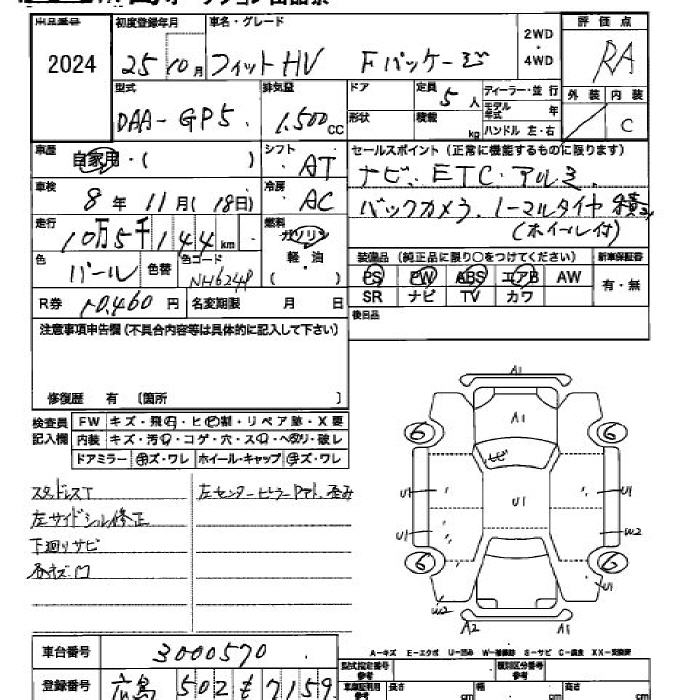 出品番号 初度登録年月 車名・グレード 2WD・4WD 評価点
2024 25 10月 フィットHV Fパッケージ RA
型式 排気量 ドア 定員 ディーラー・並行 外装 内装
DAA-GP5 1,500cc 形状 積載 5人 kg モデル年式 年 ハンドル 左・右 C
車歴 自家用・( ) シフト AT
セールスポイント (正常に機能するものに限ります)
ナビ、ETC・アルミ、
車検 8年 11月(18日) 冷房 AC
バックカメラ、ノーマルタイヤ積込
(ホイール付)
走行 10万5千144km 燃料 ガソリン
軽・油
( )
色 パール 色替 色コード NH624P
装備品 (純正品に限り○をつけてください) 新車保証書
PS PW ABS エアB AW 有・無
SR ナビ TV カワ
R券 10,460円 名変期限 月 日
後日品
注意事項申告欄(不具合内容等は具体的に記入して下さい)
修復歴 有 〔箇所 〕
検査員記入欄
FW キズ・飛石・ヒビ割・リペア跡・X要
内装 キズ・汚れ・コゲ・穴・スレ・ヘタリ・破レ
ドアミラー キズ・ワレ ホイール・キャップ キズ・ワレ
スタッドレスT
左サイドシル修正
下廻りサビ
左センターピラー 歪み
A1
A1
6 6
U1 U1 U1
U1 W2
6 6
W2 U1
A2 A1
A-キズ E-エクボ U-凹み W-補修跡 S-サビ C-腐食 XX-交換済
車台番号 3000570
登録番号 広島 502 も 7159
型式指定番号参考 類別区分番号参考
車庫証明用参考 長さ cm 幅 cm 高さ cm